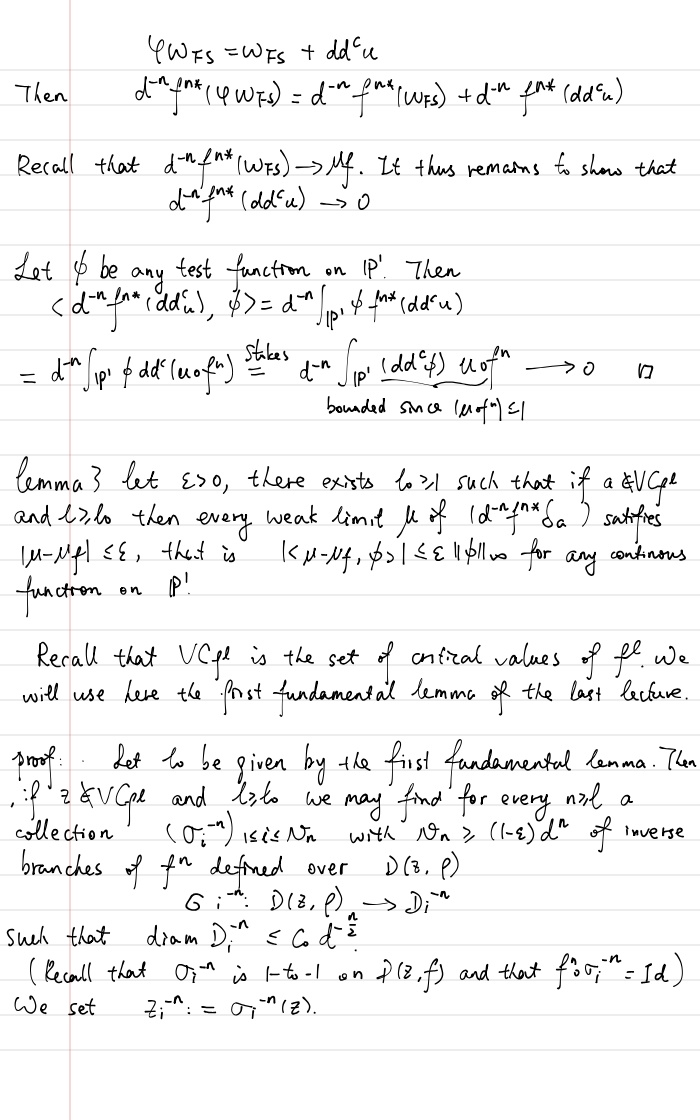 φω_FS = ω_FS + dd^c u
Then d^{-n} f^{n*}(φ ω_FS) = d^{-n} f^{n*}(ω_FS) + d^{-n} f^{n*}(dd^c u)
Recall that d^{-n} f^{n*}(ω_FS) → μ_f. It thus remains to show that
d^{-n} f^{n*}(dd^c u) → 0
Let ϕ be any test function on ℙ¹. Then
<d^{-n} f^{n*}(dd^c u), ϕ> = d^{-n} ∫_{ℙ¹} ϕ f^{n*}(dd^c u)
= d^{-n} ∫_{ℙ¹} ϕ dd^c(u∘f^n) =^{Stokes} d^{-n} ∫_{ℙ¹} (dd^c ϕ) u∘f^n → 0 □
bounded since |u∘f^n| ≤ 1
lemma 3 let ε>0, there exists l₀≥1 such that if a ∉ VC_{f^l}
and l≥l₀ then every weak limit μ of (d^{-n} f^{n*} δ_a) satifies
|μ-μ_f| ≤ ε, that is |<μ-μ_f, ϕ>| ≤ ε ||ϕ||_∞ for any continous
function on ℙ¹.
Recall that VC_{f^l} is the set of critical values of f^l. We
will use here the first fundamental lemma of the last lecture.
proof: Let l₀ be given by the first fundamental lemma. Then
, if z ∉ VC_{f^l} and l≥l₀ we may find for every n≥l a
collection (σ_i^{-n})_{1≤i≤N_n} with N_n ≥ (1-ε)d^n of inverse
branches of f^n defined over D(z, ρ)
σ_i^{-n}: D(z, ρ) → D_i^{-n}
such that diam D_i^{-n} ≤ C₀ d^{-n/2}.
(Recall that σ_i^{-n} is 1-to-1 on D(z, ρ) and that f^n∘σ_i^{-n} = Id)
We set z_i^{-n} := σ_i^{-n}(z).